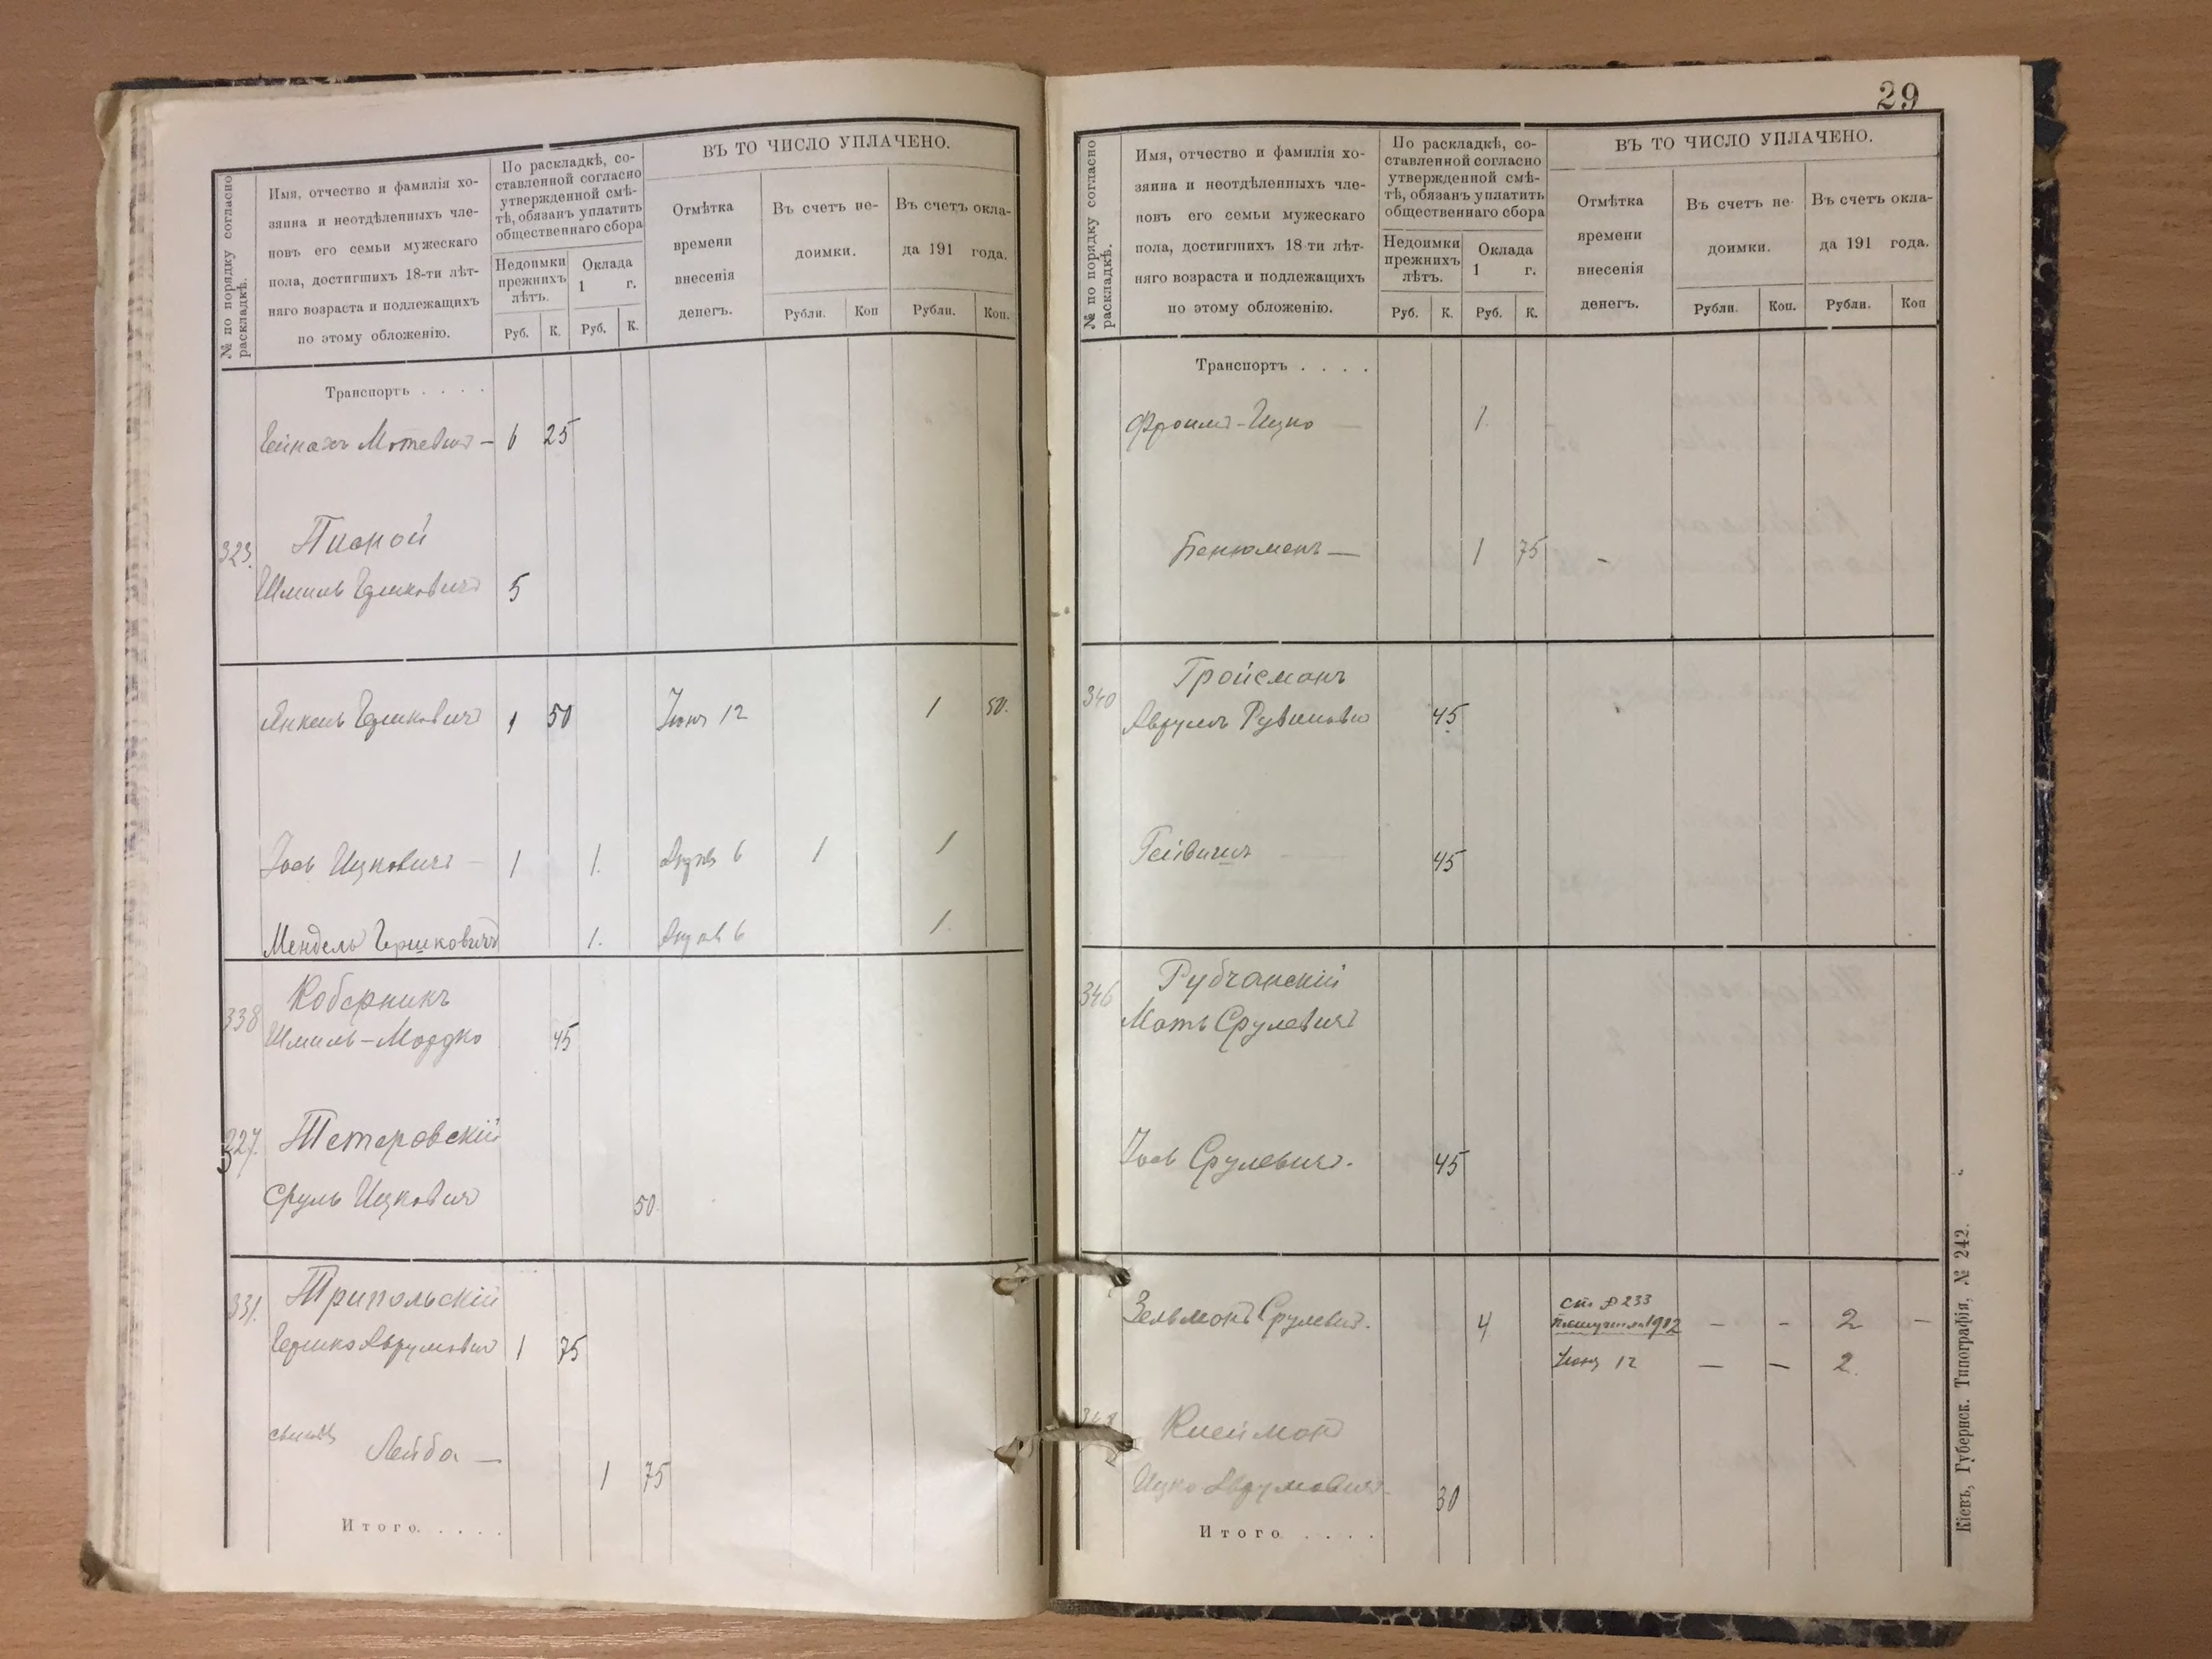 № по порядку согласно раскладкѣ.
Имя, отчество и фамилія хо-
зяина и неотдѣленныхъ чле-
новъ его семьи мужескаго
пола, достигшихъ 18-ти лѣт-
няго возраста и подлежащихъ
по этому обложенію.
По раскладкѣ, со-
ставленной согласно
утвержденной смѣ-
тѣ, обязанъ уплатить
общественнаго сбора
Недоимки
прежнихъ
лѣтъ.
Оклада
1 г.
Руб. К. Руб. К.
ВЪ ТО ЧИСЛО УПЛАЧЕНО.
Отмѣтка
времени
внесенія
денегъ.
Въ счетъ не-
доимки.
Въ счетъ окла-
да 191 года.
Рубли. Коп Рубли. Коп.
Транспортъ . . . .
Мотевичъ — 6 25
323. Писной
Шмиль Гершковичъ 5
Янкель Гершковичъ 1 50 Іюня 12 1 50.
Іось Ицковичъ — 1 1. 6 1 1
Мендель Гершковичъ 1. 6 1.
338 Коберникъ
Шмиль-Мордко 45
327. Тетеровскій
Сруль Ицковичъ 50.
331. Трипольскій
Гершко Аврумовичъ 1 75
Лейба — 1 75
Итого. . . . .
29
№ по порядку согласно раскладкѣ.
Имя, отчество и фамилія хо-
зяина и неотдѣленныхъ чле-
новъ его семьи мужескаго
пола, достигшихъ 18-ти лѣт-
няго возраста и подлежащихъ
по этому обложенію.
По раскладкѣ, со-
ставленной согласно
утвержденной смѣ-
тѣ, обязанъ уплатить
общественнаго сбора
Недоимки
прежнихъ
лѣтъ.
Оклада
1 г.
Руб. К. Руб. К.
ВЪ ТО ЧИСЛО УПЛАЧЕНО.
Отмѣтка
времени
внесенія
денегъ.
Въ счетъ не-
доимки.
Въ счетъ окла-
да 191 года.
Рубли. Коп. Рубли. Коп
Транспортъ . . . .
Фроимъ-Ицко — 1.
Бенюменъ — 1 75 -
340 Гройсманъ
Аврумъ Рувиновичъ 45
45
346 Рубчанскій
Мотъ Срулевичъ
Іось Срулевичъ. 45
Зельманъ Срулевичъ. 4 ст 233
1912 — - 2 —
Іюня 12 — — 2.
Клейманъ
Ицко Аврумовичъ. 30
Итого . . . .
Кіевъ, Губернск. Типографія, № 242.